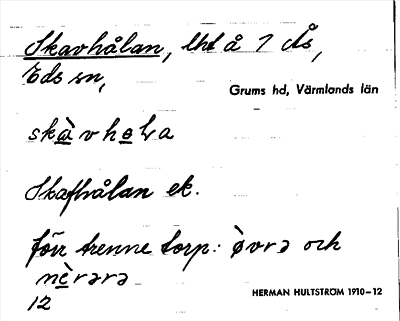 Skavhålan, lht å 7 ds,
Eds sn,
Grums hd, Värmlands län
skàvhola
Skafhålan ek.
förr trenne torp: òvrə och
nèrərə
12
HERMAN HULTSTRÖM 1910–12